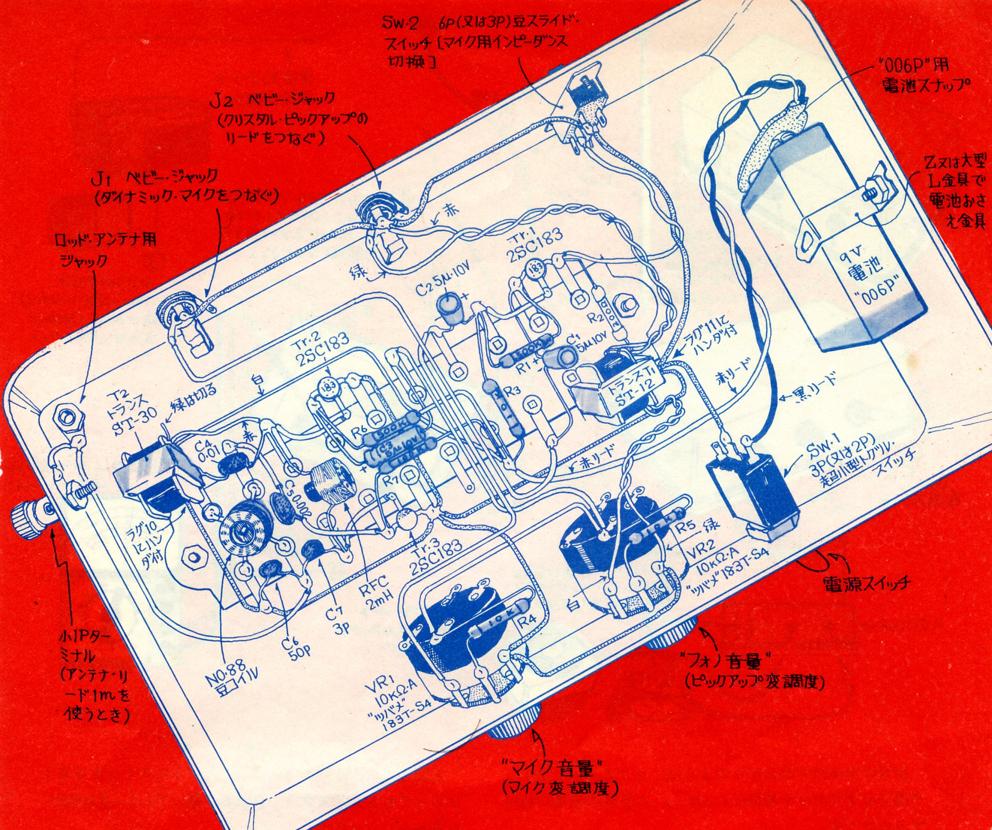 SW·2 6P(又は3P)豆スライド·
スイッチ〔マイク用インピーダンス
切換〕
"006P"用
電池スナップ
J2 ベビー·ジャック
(クリスタル·ピックアップの
リードをつなぐ)
J1 ベビー·ジャック
(ダイナミック·マイクをつなぐ)
Z又は大型
L金具で
電池おさ
え金具
ロッド·アンテナ用
ジャック
赤
緑
Tr.1
2SC183
183
C2 5μ·10V
+
9V
電池
"006P"
R2
C1
5μ10V
R1
+
500K
ラグ11に
ハンダ付
トランスT1
ST-12
R3
赤リード
黒リード
Tr.2
2SC183
183
T2
トランス
ST-30
緑は切る
白
赤
C4
0.01
R6
500K
5μ10V
+
R7
C5 0.002
赤リード
SW·1
3P(又は2P)
超小型トグル·
スイッチ
ラグ10
にハン
ダ付
Tr.3
2SC183
RFC
2mH
C7
3P
C6
50P
NO.88
豆コイル
R5
緑
VR2
10KΩ·A
"ツバメ"183T-S4
白
電源スイッチ
10K
R4
VR1
10KΩ·A
"ツバメ"
183T-S4
小1Pター
ミナル
(アンテナ·リ
ード1mを
使うとき)
"フォノ音量"
(ピックアップ変調度)
"マイク音量"
(マイク変調度)